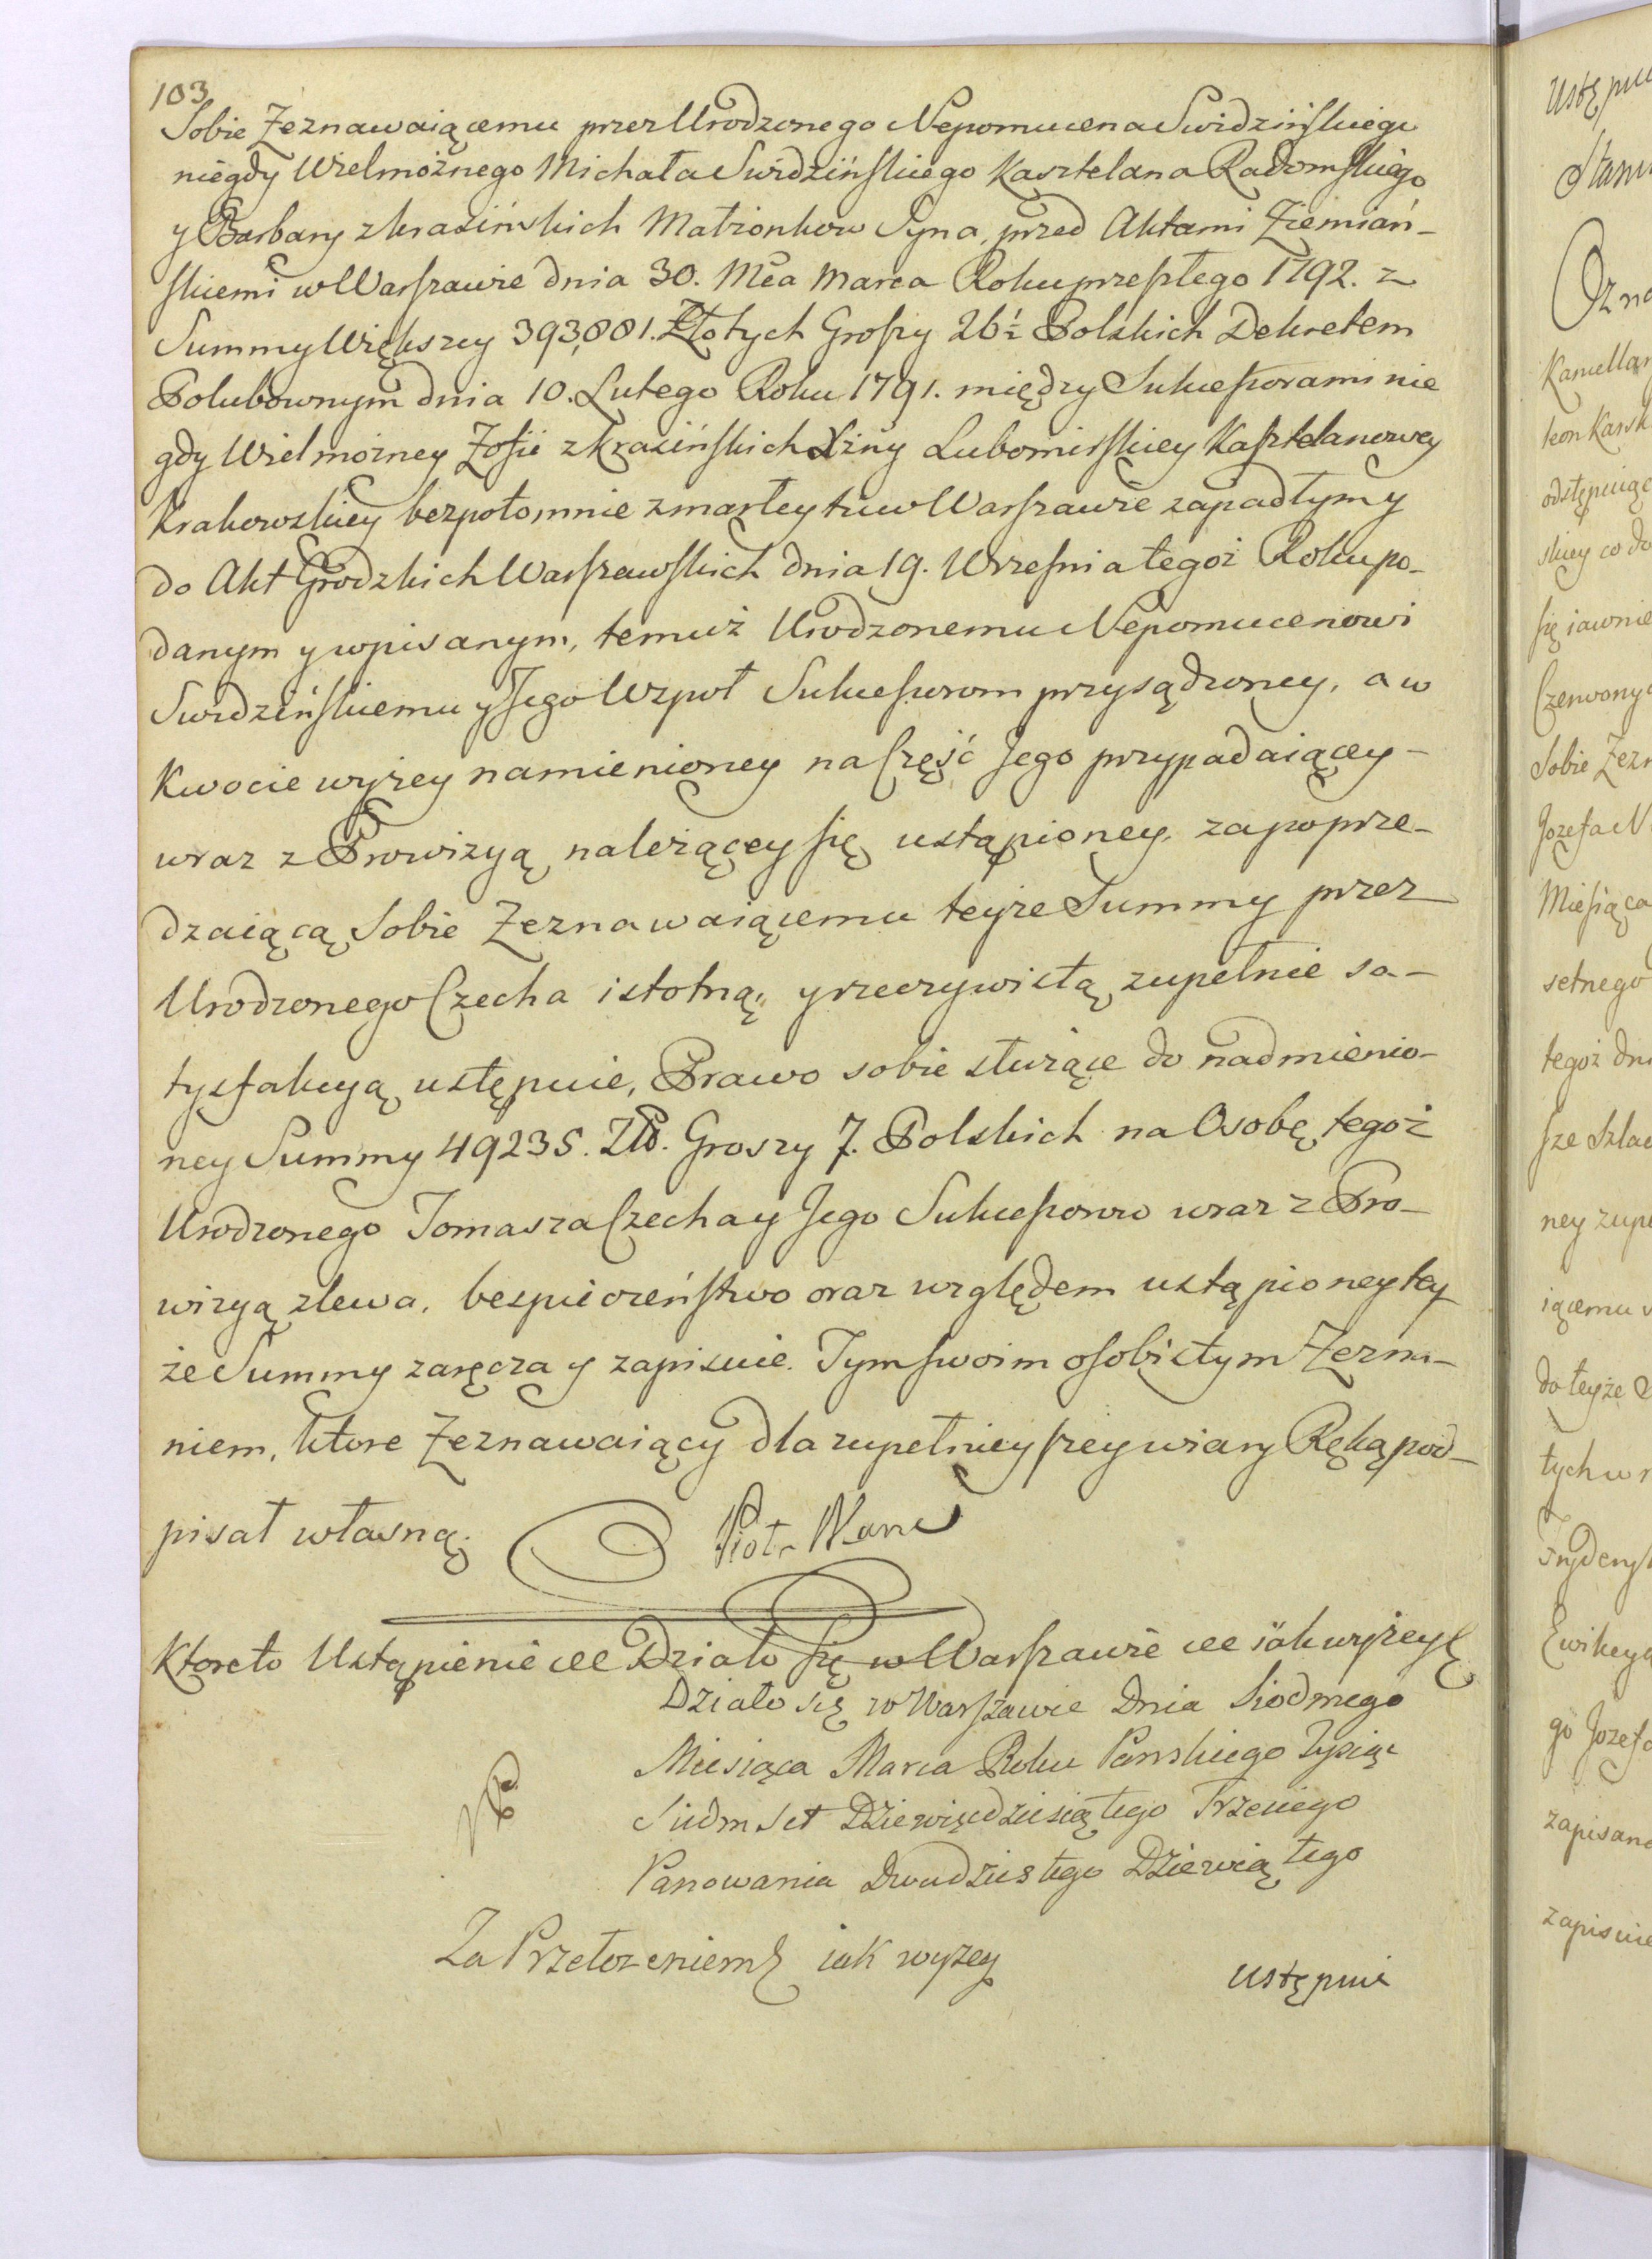 103
Sobie Zeznawaiącemu przez Urodzonego Nepomucena Swidzińskiego
niegdy Wielmożnego Michała Swidzińskiego Kasztelana Radomskiego
y Barbary z krasińskich Matzonkow Syna, przed Aktami Ziemiań-
skiemi w Warszawie dnia 30. Mca Marca Roku przeszłego 1792. z
Summy Większey 393,881. Złotych Groszy 26½ Polskich Dekretem
Polubownym dnia 10. Lutego Roku 1791. między Sukcessorami nie
gdy Wielmożney Zofii z krasińskich Xżny Lubomirskiey Kasztelanowey
Krakowskiey bezpotomnie zmarłey tu w Warszawie zapadłym y
do Akt Grodzkich Warszawskich dnia 19. Wrzesnia tegoż Roku po-
danym y wpisanym, temuż Urodzonemu Nepomucenowi
Swidzińskiemu y Jego Wzpoł Sukcessorom przysądzoney, a w
Kwocie wyżey namienioney na Część Jego przypadaiącey-
wraz z Prowizyą należącey się ustąpioney, za poprze-
dzaiącą Sobie Zeznawaiącemu teyże Summy przez
Urodzonego Czecha istotną, y rzeczywistą zupełnie sa-
tysfakcyą ustępuie, Prawo sobie służące do nadmienio-
ney Summy 49235. Złł. Groszy 7. Polskich na Osobę tegoż
Urodzonego Tomasza Czecha y Jego Sukcessorow wraz z Pro-
wizyą zlewa, bespieczeństwo oraz względem ustąpioney tey
że Summy zaręcza y zapisuie. Tym swoim osobistym Zezna-
niem, ktore Zeznawaiący dla zupełnieyszey wiary Ręką pod-
pisał własną.
Piotr
Ktoreto Ustąpienie &c Działo się w Warszawie &c iak wyżey
Działo się w Warszawie Dnia Siodmego
Miesiąca Marca Roku Pańskiego Tysiąc
Siedm Set Dziewięćdziesiątego Trzeciego
Panowania Dwudziestego Dziewiątego
Za Przełożeniem iak wyżey
Ustępuie
Ustępuie
odstępuiąc
skiey co do
się iawnie
Sobie Zezn
Miesiąca
setnego
tegoż dni
ney zupe
iącemu
do teyże
tych w
zapisuie